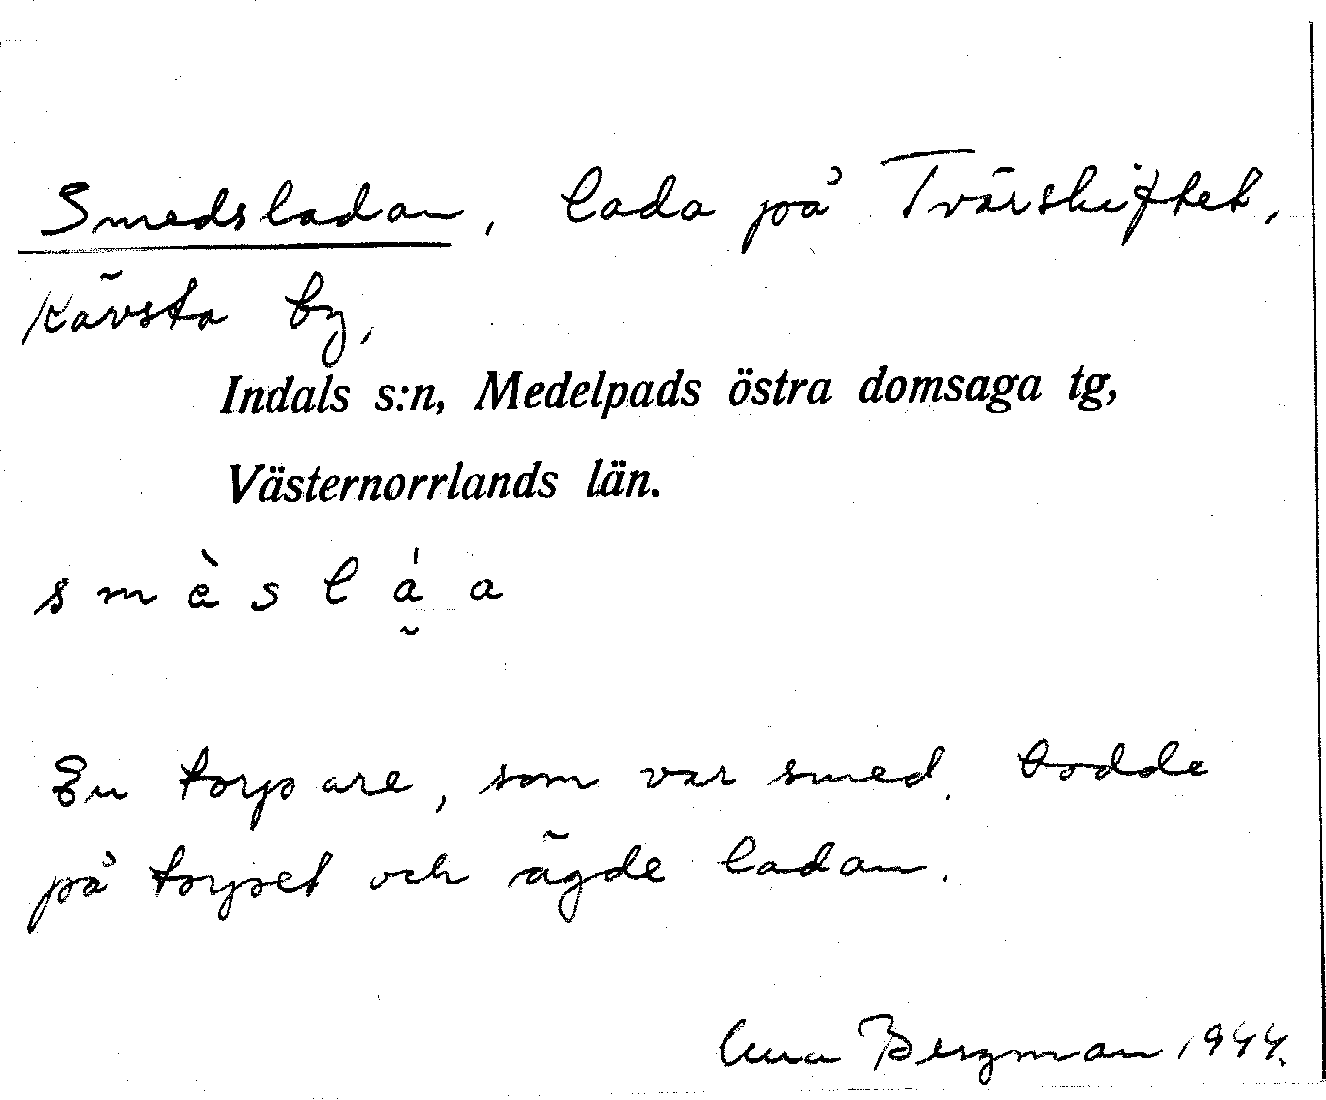 Smedsladan, lada på Tvärskiftet,
Kävsta by,
Indals s:n, Medelpads östra domsaga tg,
Västernorrlands län.
s m è s l á̰ a
En torpare, som var smed, bodde
på torpet och ägde ladan.
Bergman 1944.